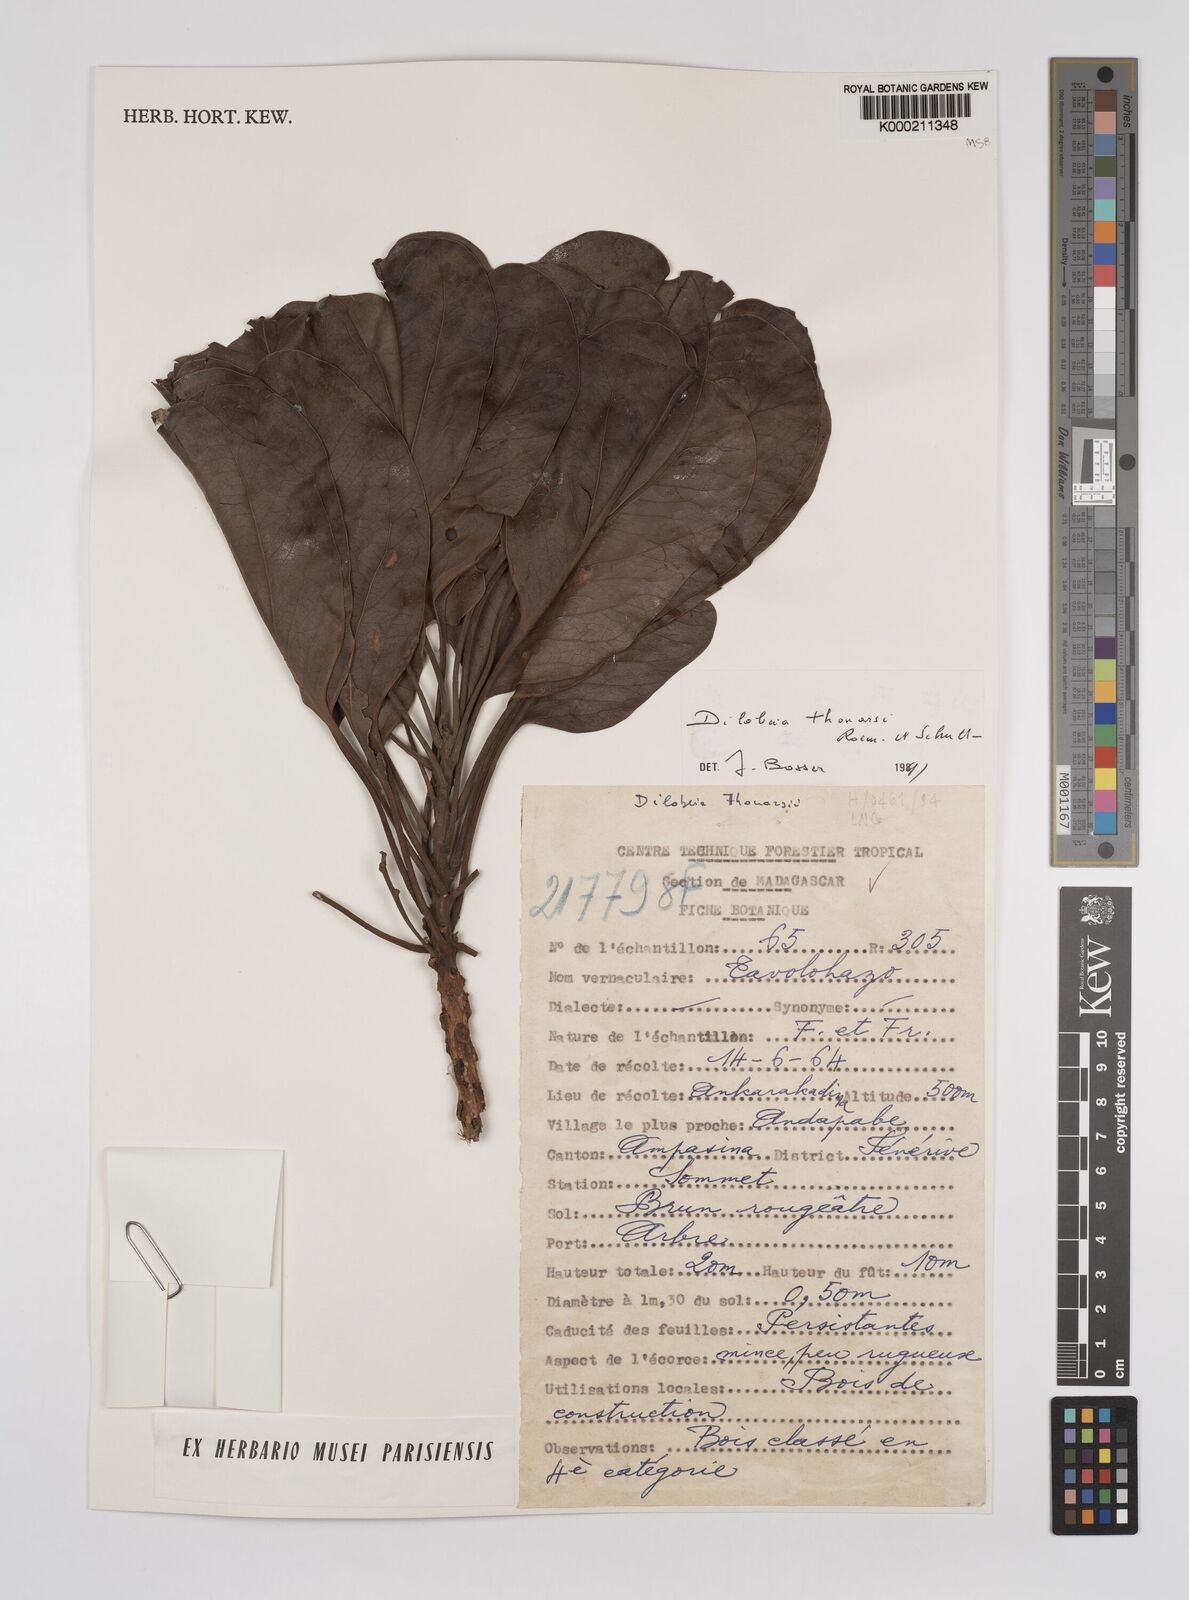 HERB. HORT. KEW.
ROYAL BOTANIC GARDENS KEW
K000211348
MSB
Dilobeia thouarsi
Roem. et Schult
DET. J. Bosser 1991
Dilobeia Thouarsii
CENTRE TECHNIQUE FORESTIER TROPICAL
Section de MADAGASCAR
21779 SF
FICHE BOTANIQUE
N° de l'échantillon: 65 R: 305
Nom vernaculaire: Tavolohazo
Dialecte: Synonyme:
Nature de l'échantillon: F. et Fr.
Date de récolte: 14-6-64
Lieu de récolte: Ankarakadina Altitude 500m
Village le plus proche: Andapabe
Canton: Ampasina District Fénérive
Station: Sommet
Sol: Brun rougeâtre
Port: Arbre
Hauteur totale: 20m Hauteur du fût: 10m
Diamètre à 1m,30 du sol: 0,50m
Caducité des feuilles: Persistantes
Aspect de l'écorce: mince, peu rugueuse
Utilisations locales: Bois de
construction
Observations: Bois classé en
4è catégorie
EX HERBARIO MUSEI PARISIENSIS
inches
Density
Don Williams
M001167
Kew
Royal Botanic Gardens
copyright reserved
0 1 2 3 4 5 6 7 8 9 10
cm